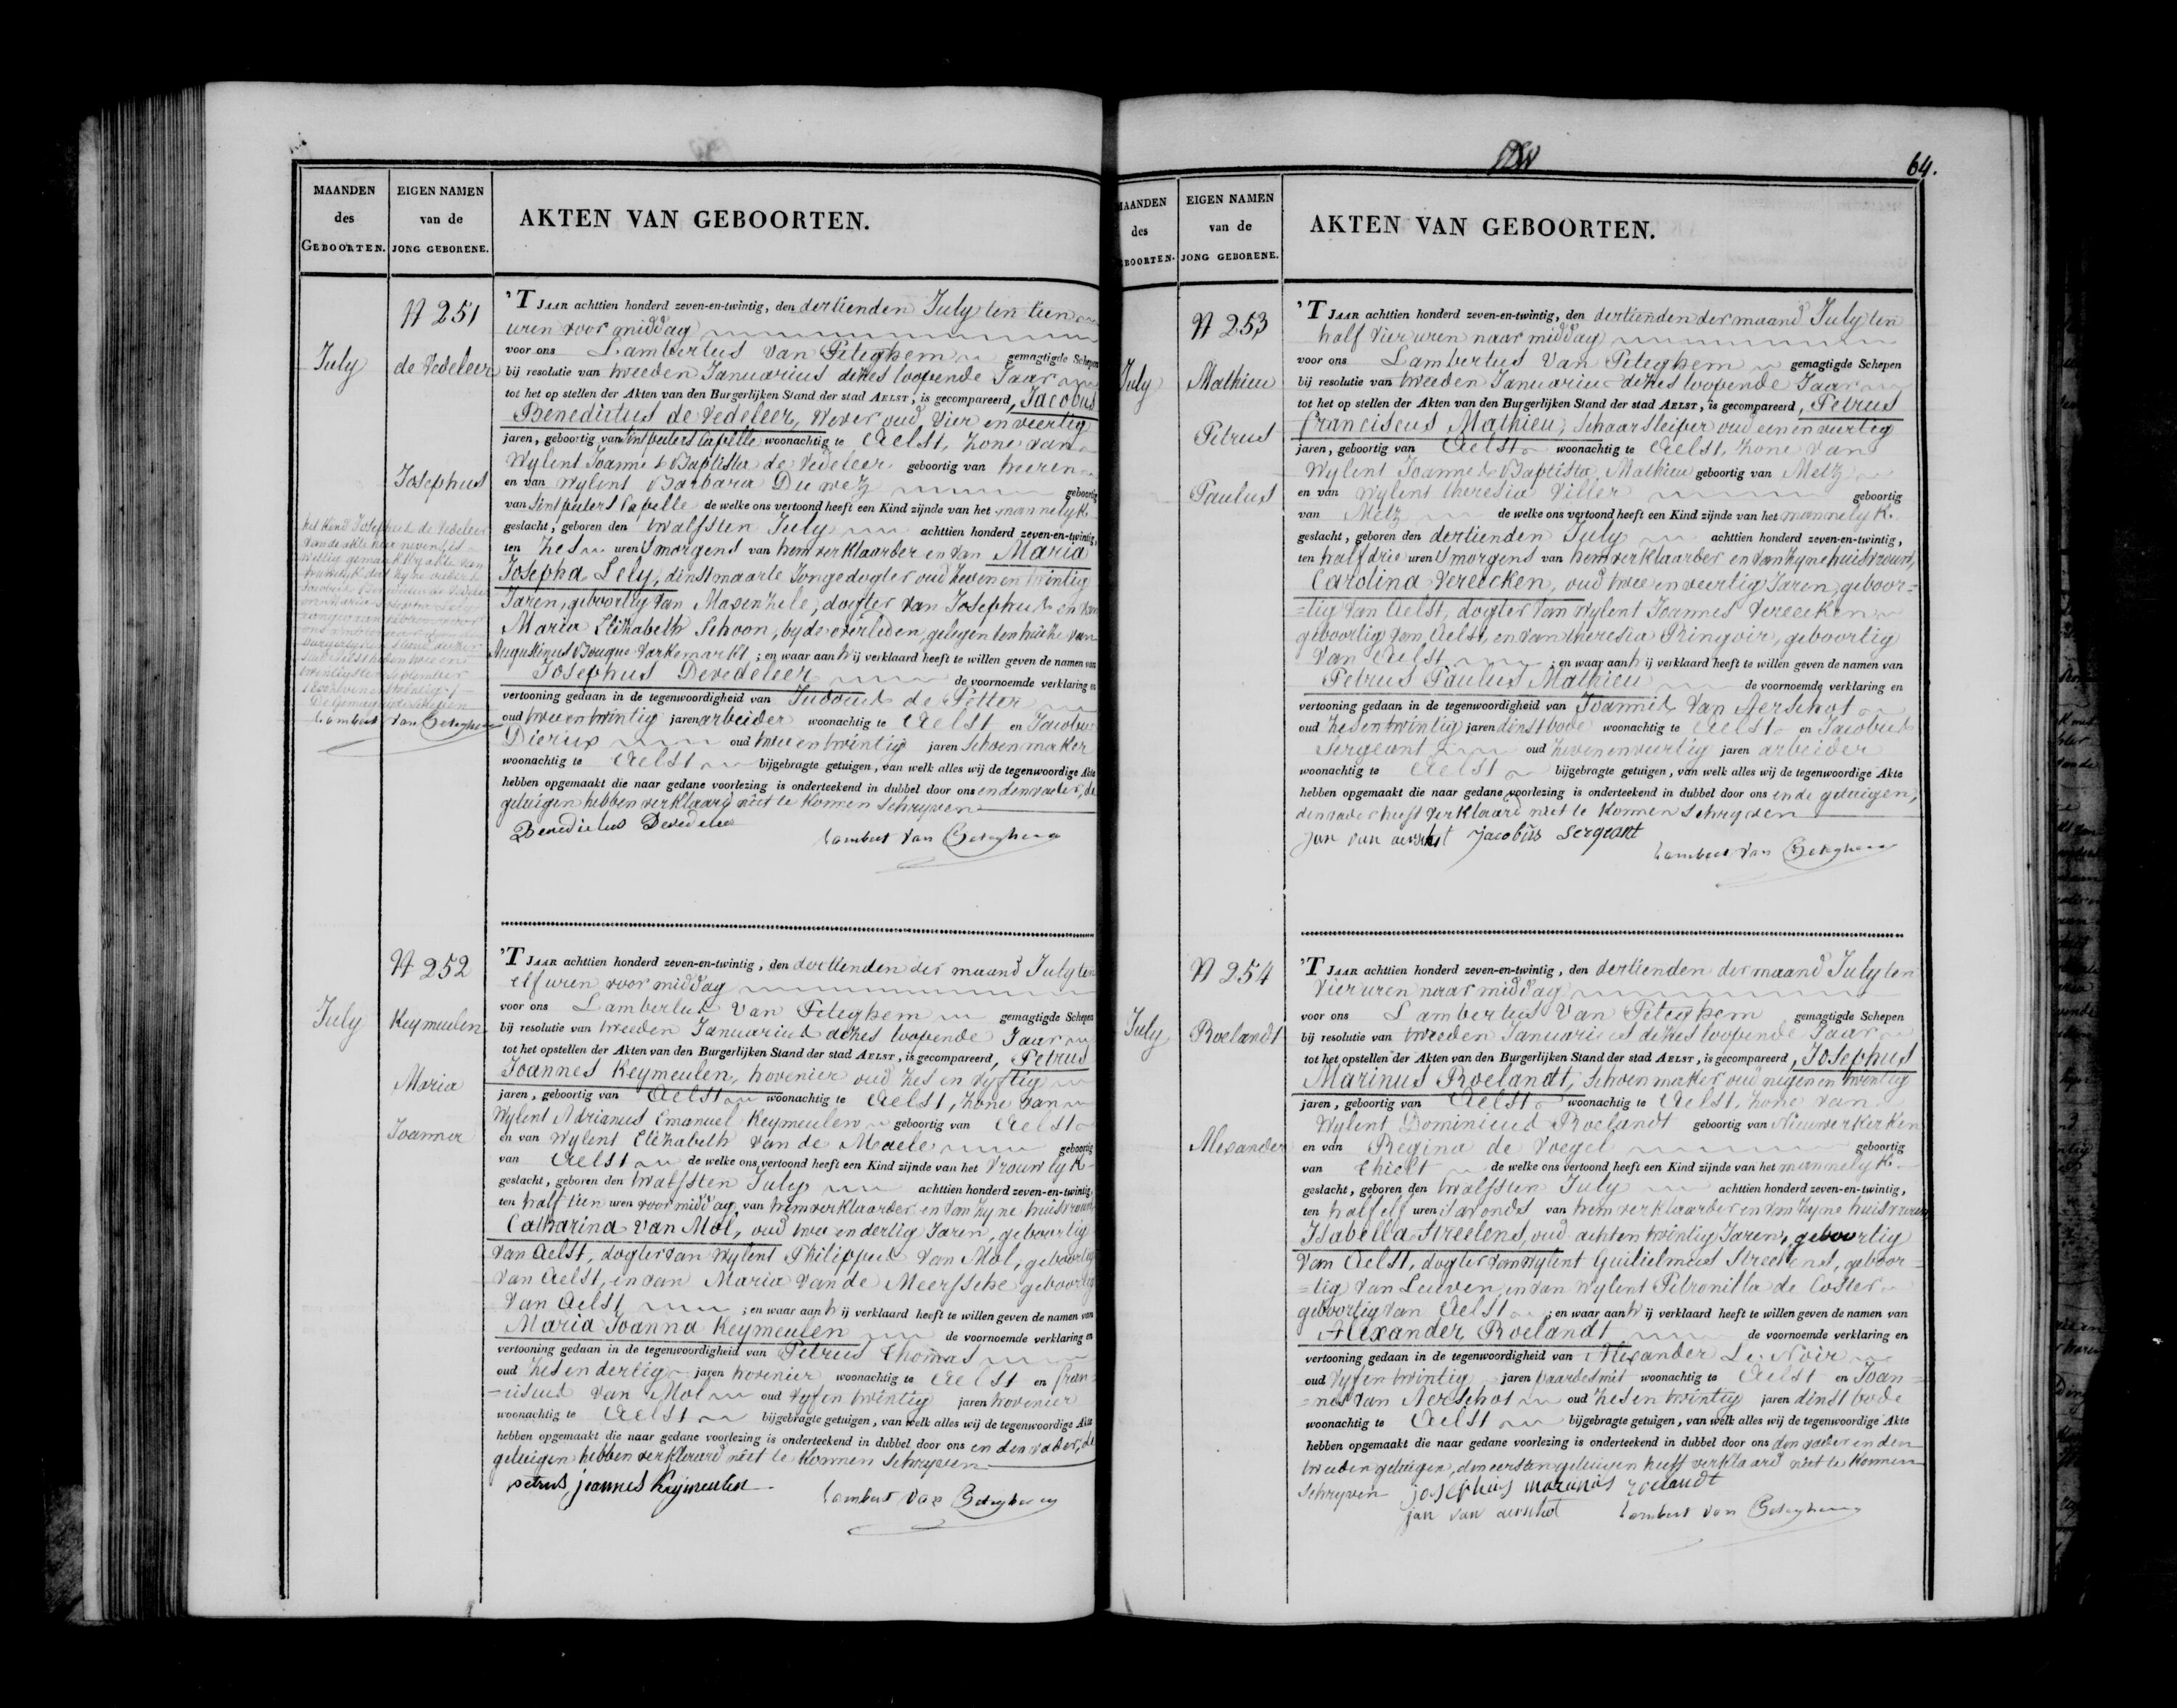 MAANDEN
des
GEBOORTEN.
EIGEN NAMEN
van de
JONG GEBORENE.
AKTEN VAN GEBOORTEN.
N 251
July
de Vedeleer
Josephus
het kind Josephus de Vedeleer
Lambert Van Peteghem
'T JAAR achttien honderd zeven-en-twintig, den dertienden July ten tien
uren voor middag
voor ons Lambertus Van Peteghem gemagtigde Schepen
bij resolutie van tweeden Januarius dezes loopende Jaar
tot het op stellen der Akten van den Burgerlijken Stand der stad AELST, is gecompareerd, Jacobus
Benedictus de Vedeleer, Wever oud Vier en veertig
jaren, geboortig van Sint peeters Capelle woonachtig te Aelst, Zone van
Wylent Joannes Baptista de Vedeleer geboortig van heeren
en van Wylent Barbara Du wez geboortig
van Sint peeters Capelle de welke ons vertoond heeft een Kind zijnde van het mannelyk
geslacht, geboren den twalfsten July achttien honderd zeven-en-twintig,
ten Zes uren Smorgens van hem verklaarder en van Maria
Josepha Lely, dinstmaarte Jonge dogter oud Zeven en twintig
Jaren, geboortig Van Maxenzele, dogter van Josephus en van
Maria Elizabeth Schoon, byde overleden, gelegen ten huize van
Augustinus Bouque Varkemarkt; en waar aan hij verklaard heeft te willen geven de namen van
Josephus Devedeleer de voornoemde verklaring en
vertooning gedaan in de tegenwoordigheid van Judocus de Petter
oud twee en twintig jaren arbeider woonachtig te Aelst en Jacobus
Dierux oud twee en twintig jaren Schoenmaker
woonachtig te Aelst bijgebragte getuigen, van welk alles wij de tegenwoordige Akte
hebben opgemaakt die naar gedane voorlezing is onderteekend in dubbel door ons en den vader, de
getuigen hebben verklaard niet te konnen Schryven
Benedictus Devedeleer
Lambert Van Peteghem
N 252
July
Keymeulen
Maria
Joanna
'T JAAR achttien honderd zeven-en-twintig, den dertienden der maand July ten
elf uren voor middag
voor ons Lambertus Van Peteghem gemagtigde Schepen
bij resolutie van tweeden Januarius dezes loopende Jaar
tot het opstellen der Akten van den Burgerlijken Stand der stad AELST, is gecompareerd, Petrus
Joannes Keymeulen, hovenier oud Zes en vyftig
jaren, geboortig van Aelst woonachtig te Aelst, Zone van
Wylent Adrianus Emanuel Keymeulen geboortig van Aelst
en van Wylent Elizabeth Van de Maele geboortig
van Aelst de welke ons vertoond heeft een Kind zijnde van het Vrouwlyk
geslacht, geboren den twalfsten July achttien honderd zeven-en-twintig,
ten half tien uren voor middag, van hem verklaarder en van Zyne huisvrouw
Catharina Van Mol, oud twee en dertig Jaren, geboortig
van Aelst, dogter van Wylent Philippus Van Mol, geboortig
van Aelst, en van Maria Van de Meerssche geboortig
Van Aelst; en waar aan hij verklaard heeft te willen geven de namen van
Maria Joanna Keymeulen de voornoemde verklaring en
vertooning gedaan in de tegenwoordigheid van Petrus Thomas
oud Zes en dertig jaren hovenier woonachtig te Aelst en fran=
=ciscus Van Mol oud Vyf en twintig jaren hovenier
woonachtig te Aelst bijgebragte getuigen, van welk alles wij de tegenwoordige Akte
hebben opgemaakt die naar gedane voorlezing is onderteekend in dubbel door ons en den vader, de
getuigen hebben verklaard niet te konnen Schryven
petrus joannes Keymeulen
Lambert Van Peteghem
64.
MAANDEN
des
BOORTEN.
EIGEN NAMEN
van de
JONG GEBORENE.
AKTEN VAN GEBOORTEN.
N 253
July
Mathieu
Petrus
Paulus
'T JAAR achttien honderd zeven-en-twintig, den dertienden der maand July ten
half Vier uren naar middag
voor ons Lambertus Van Peteghem gemagtigde Schepen
bij resolutie van tweeden Januarius dezes loopende Jaar
tot het op stellen der Akten van den Burgerlijken Stand der stad AELST, is gecompareerd, Petrus
franciscus Mathieu, Schaarsleiper oud een en viertig
jaren, geboortig van Aelst woonachtig te Aelst, Zone van
Wylent Joannes Baptista Mathieu geboortig van Metz
en van Wylent theresia Viller geboortig
van Metz de welke ons vertoond heeft een Kind zijnde van het mannelyk
geslacht, geboren den dertienden July achttien honderd zeven-en-twintig,
ten half drie uren Smorgens van hem verklaarder en van Zyne huisvrouw,
Carolina Vereecken, oud twee en veertig Jaren, geboor=
=tig van Aelst, dogter van Wylent Joannes Vereecken
geboortig van Aelst, en van theresia Ringoir, geboortig
Van Aelst; en waar aan hij verklaard heeft te willen geven de namen van
Petrus Paulus Mathieu de voornoemde verklaring en
vertooning gedaan in de tegenwoordigheid van Joannes Van Aerschot
oud Zes en twintig jaren dinstbode woonachtig te Aelst en Jacobus
Sergeant oud Zeven en viertig jaren arbeider
woonachtig te Aelst bijgebragte getuigen, van welk alles wij de tegenwoordige Akte
hebben opgemaakt die naar gedane voorlezing is onderteekend in dubbel door ons en de getuigen,
den vader heeft verklaard niet te konnen Schryven
Jan van aerschot Jacobus Sergeant
Lambert Van Peteghem
N 254
July
Roelandt
Alexander
'T JAAR achttien honderd zeven-en-twintig, den dertienden der maand July ten
Vier uren naar middag
voor ons Lambertus Van Peteghem gemagtigde Schepen
bij resolutie van tweeden Januarius dezes loopende Jaar
tot het opstellen der Akten van den Burgerlijken Stand der stad AELST, is gecompareerd, Josephus
Marinus Roelandt, Schoenmaker oud negen en twintig
jaren, geboortig van Aelst woonachtig te Aelst, Zone van
Wylent Dominicus Roelandt geboortig van Nieuwerkerken
en van Regina de Voegel geboortig
van Thielt de welke ons vertoond heeft een Kind zijnde van het mannelyk
geslacht, geboren den twalfsten July achttien honderd zeven-en-twintig,
ten half elf uren Savonds van hem verklaarder en van Zyne huisvrouw
Isabella Streelens, oud acht en twintig Jaren, geboortig
Van Aelst, dogter van Wylent Guilielmus Streelens, geboor=
=tig van Leuven, en van Wylent Petronilla de Coster
geboortig van Aelst; en waar aan hij verklaard heeft te willen geven de namen van
Alexander Roelandt de voornoemde verklaring en
vertooning gedaan in de tegenwoordigheid van Alexander Le Noir
oud Vyf en twintig jaren paardesmit woonachtig te Aelst en Joan=
=nes Van Aerschot oud Zes en twintig jaren dinstbode
woonachtig te Aelst bijgebragte getuigen, van welk alles wij de tegenwoordige Akte
hebben opgemaakt die naar gedane voorlezing is onderteekend in dubbel door ons den vader en den
tweeden getuigen, den eersten getuigen heeft verklaard niet te konnen
Schryven josephus marinus roelandt
jan van aerschot Lambert Van Peteghem